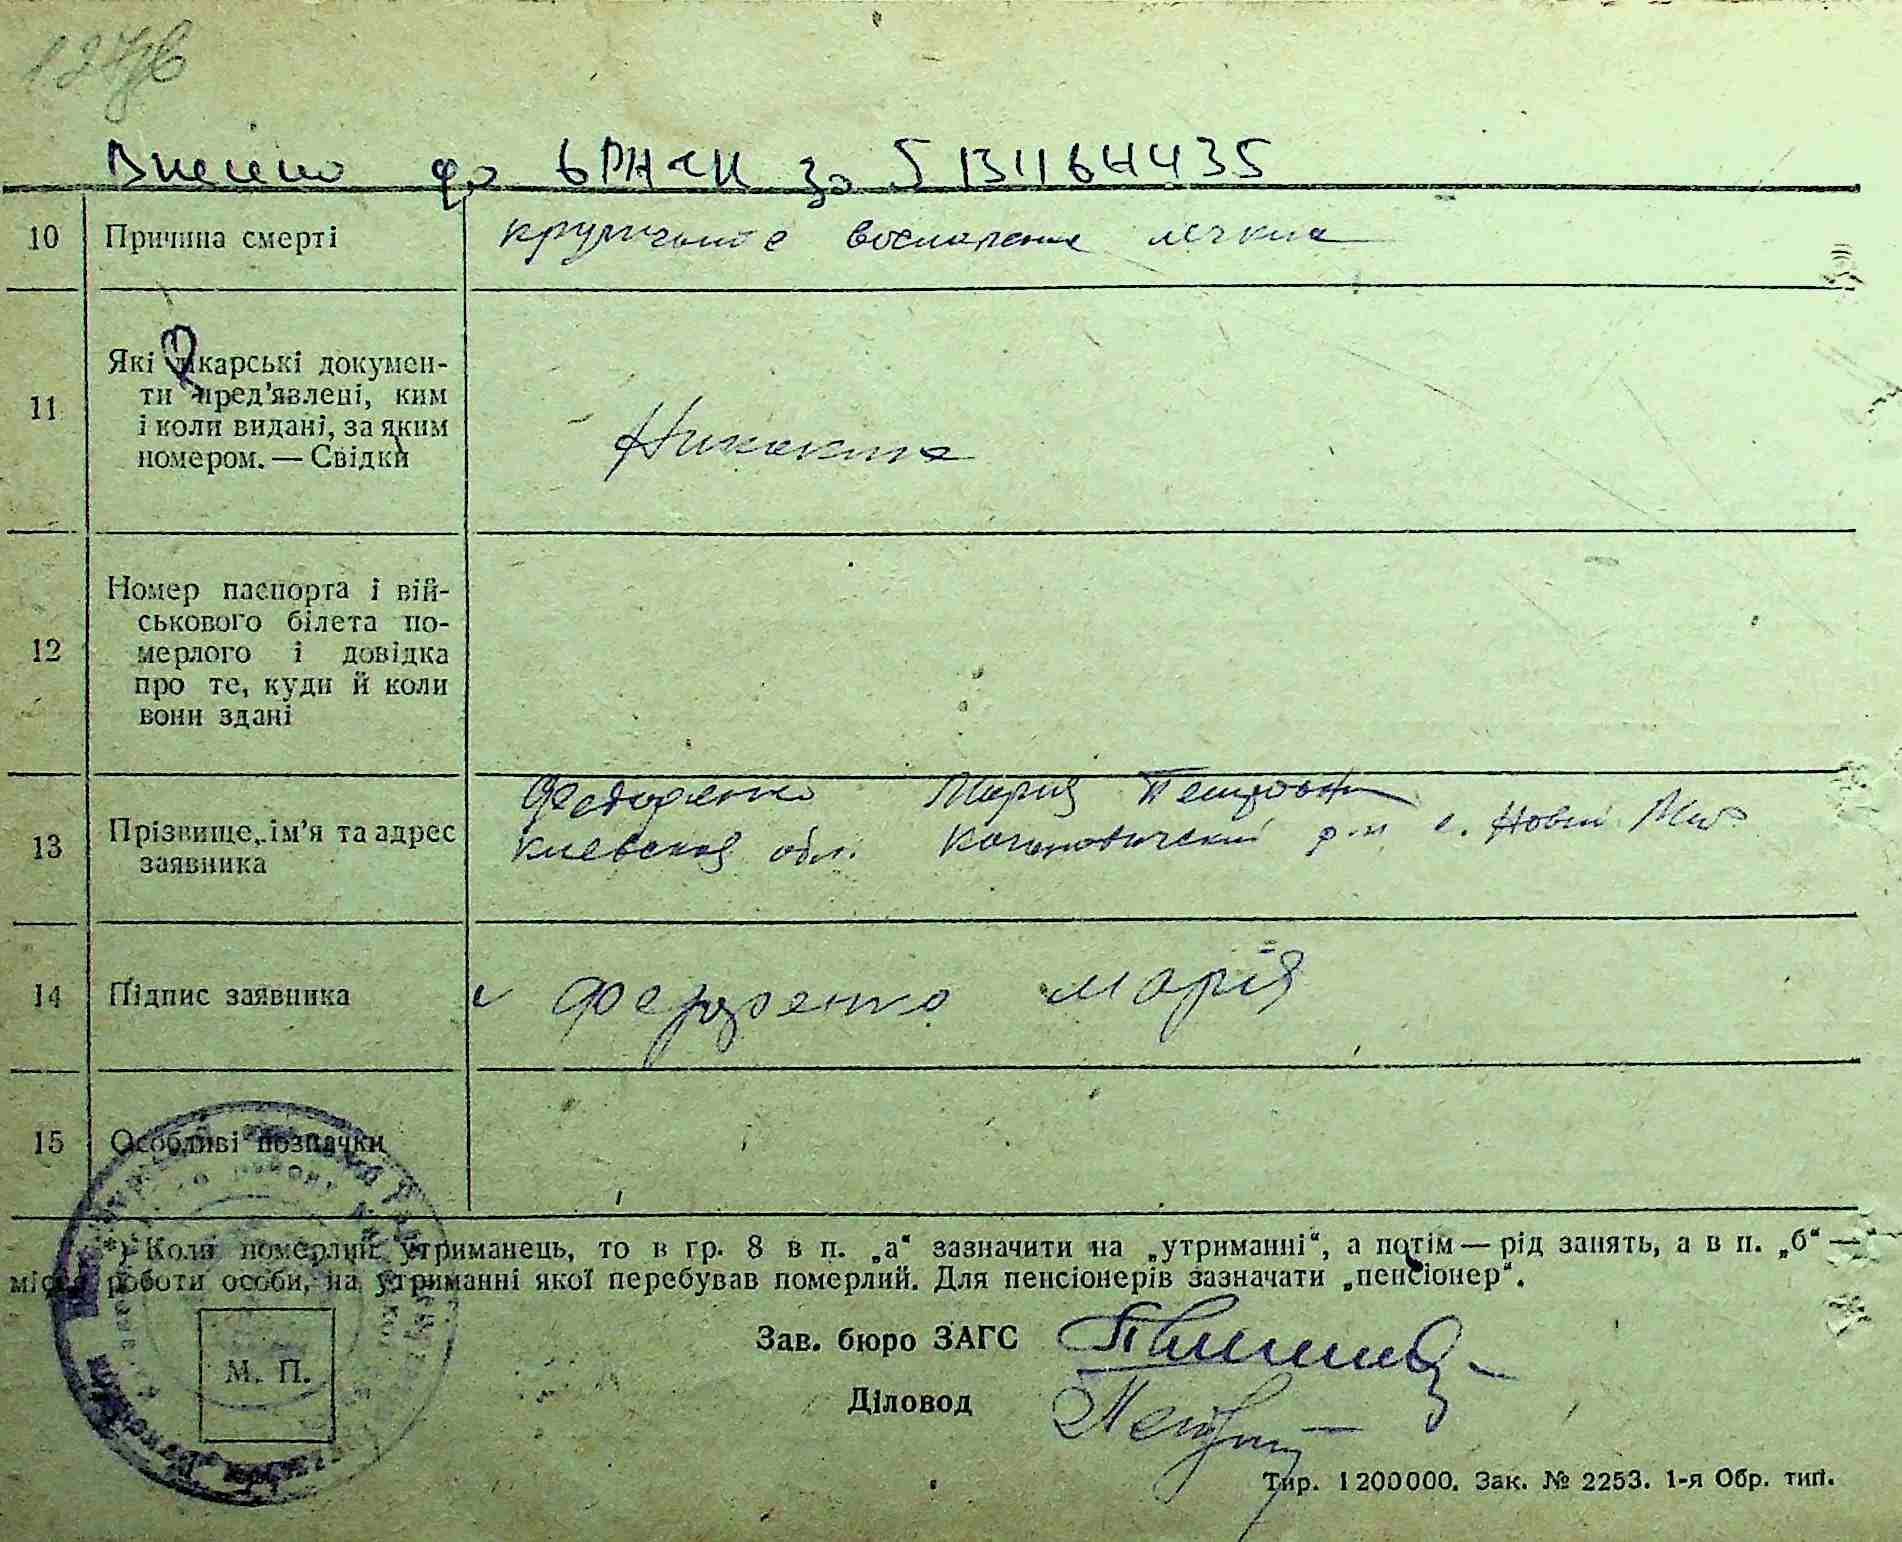 Внесено до за
10 Причина смерті крупозное воспаление легких
11 Які лікарські докумен-
ти пред'явлені, ким
і коли видані, за яким
номером. — Свідки
Никакие
12 Номер паспорта і вій-
ськового білета по-
мерлого і довідка
про те, куди й коли
вони здані
13 Прізвище, ім'я та адрес
заявника
Федоренко Мария Петровна
Киевская обл. Кагановичский р-н с. Новый Мир
14 Підпис заявника Федоренко Марія
15 Особливі позначки
*) Коли померлий утриманець, то в гр. 8 в п. „а“ зазначити на „утриманні“, а потім — рід занять, а в п. „б“ —
місце роботи особи, на утриманні якої перебував померлий. Для пенсіонерів зазначати „пенсіонер“.
Зав. бюро ЗАГС
М. П.
Діловод
Тир. 1 200 000. Зак. № 2253. 1-я Обр. тип.